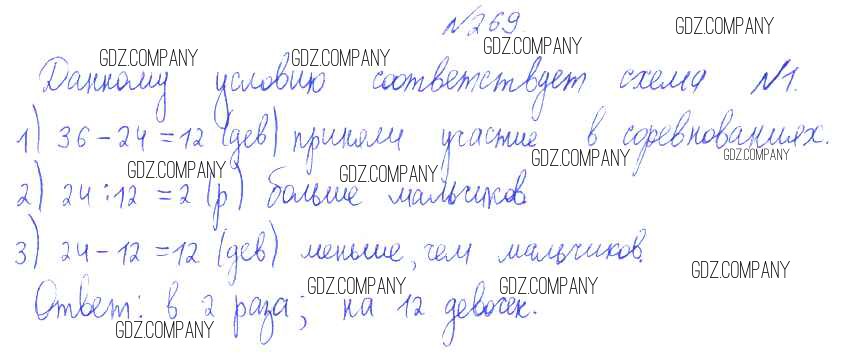 №269.
Данному условию соответствует схема №1.
1) 36 - 24 = 12 (дев) приняли участие в соревнованиях.
2) 24 : 12 = 2 (р) больше мальчиков
3) 24 - 12 = 12 (дев) меньше, чем мальчиков.
Ответ: в 2 раза; на 12 девочек.
GDZ.COMPANY
GDZ.COMPANY
GDZ.COMPANY
GDZ.COMPANY
GDZ.COMPANY
GDZ.COMPANY
GDZ.COMPANY
GDZ.COMPANY
GDZ.COMPANY
GDZ.COMPANY
GDZ.COMPANY
GDZ.COMPANY